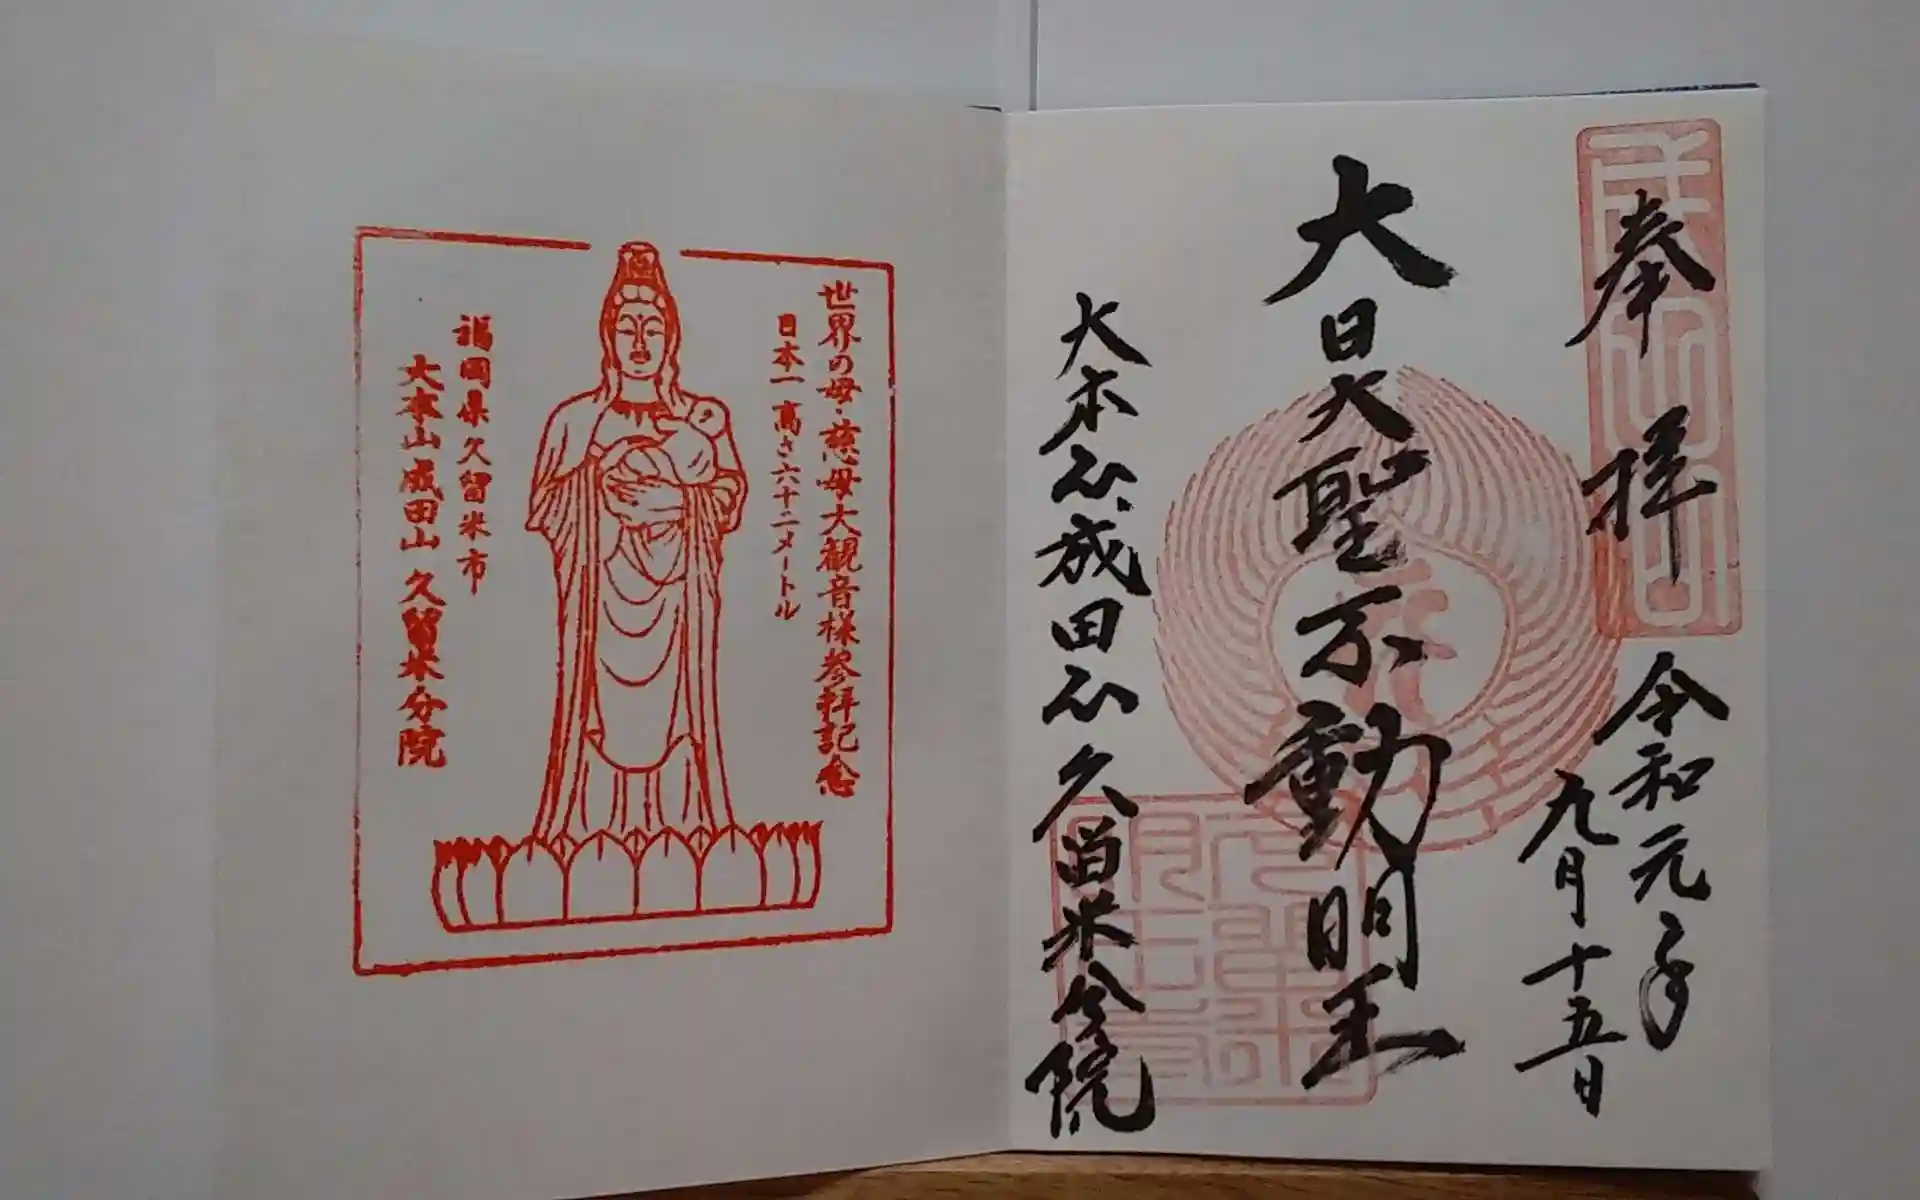 奉拝
令和元年
九月十五日
大日大聖不動明王
大本山成田山久留米分院
世界の母・慈母大観音様参拝記念
日本一高さ六十二メートル
福岡県久留米市
大本山成田山久留米分院
成田山